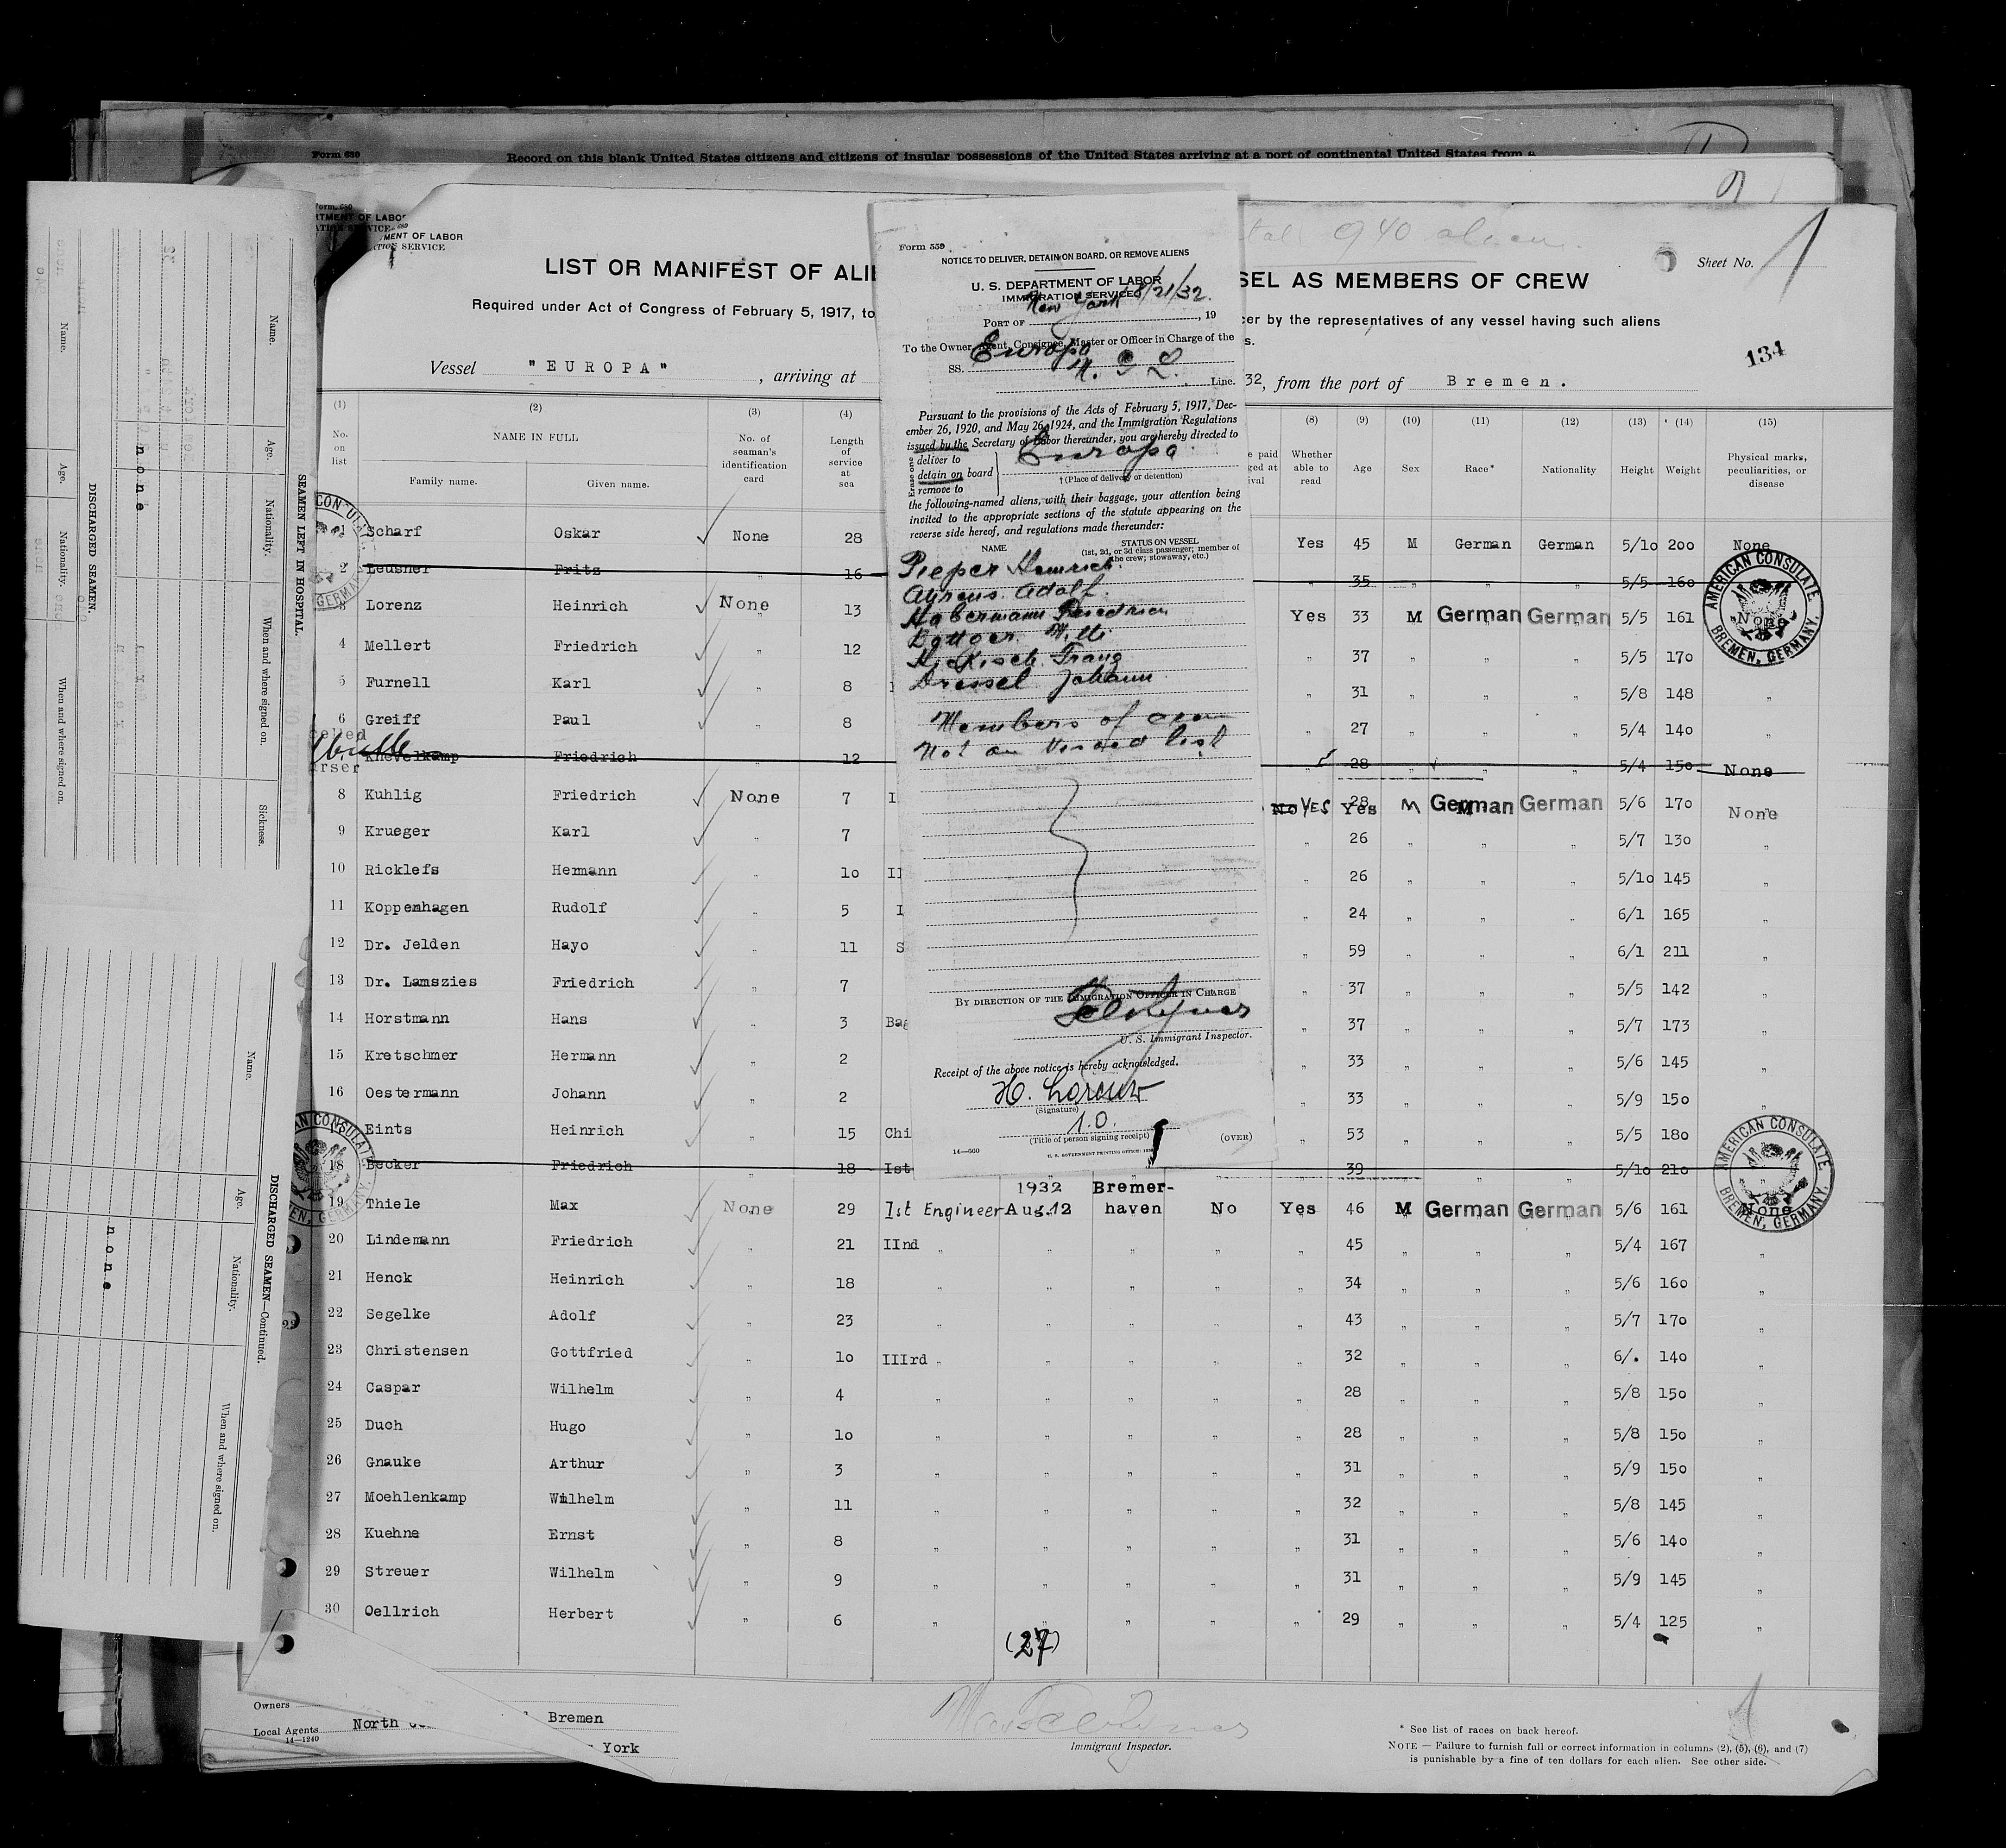 Form 630 Record on this blank United States citizens and citizens of insular possessions of the United States arriving at a port of continental United States from a
MENT OF LABOR
SERVICE
LIST OR MANIFEST OF ALIE
SEL AS MEMBERS OF CREW
940
Sheet No. 1
Required under Act of Congress of February 5, 1917, to
cer by the representatives of any vessel having such aliens
s.
134
Vessel "EUROPA", arriving at
32, from the port of Bremen.
(1) (2) (3) (4) (8) (9) (10) (11) (12) (13) (14) (15)
No. on list NAME IN FULL Family name. Given name. No. of seaman's identification card Length of service at sea Whether able to read Age Sex Race* Nationality Height Weight Physical marks, peculiarities, or disease
1 Scharf Oskar None 28 Yes 45 M German German 5/10 200 None
2 Leusner Fritz " 16 " 35 5/5 160
3 Lorenz Heinrich None 13 Yes 33 M German German 5/5 161 None
4 Mellert Friedrich " 12 " 37 " " " 5/5 170
5 Furnell Karl " 8 " 31 " " " 5/8 148 "
6 Greiff Paul " 8 " 27 " " " 5/4 140 "
Knevelkamp Friedrich " 12 " 28 " " 5/4 150 None
8 Kuhlig Friedrich None 7 I No YES 28 Yes M German German 5/6 170 None
9 Krueger Karl " 7 " 26 " " " 5/7 130 "
10 Ricklefs Hermann " 10 II " 26 " " " 5/10 145 "
11 Koppenhagen Rudolf " 5 I " 24 " " " 6/1 165 "
12 Dr. Jelden Hayo " 11 S " 59 " " " 6/1 211 "
13 Dr. Lamszies Friedrich " 7 " 37 " " " 5/5 142 "
14 Horstmann Hans " 3 Bag " 37 " " " 5/7 173 "
15 Kretschmer Hermann " 2 " 33 " " " 5/6 145 "
16 Oestermann Johann " 2 " 33 " " " 5/9 150 "
Eints Heinrich " 15 Chi " 53 " " " 5/5 180
18 Becker Friedrich " 18 Ist " 39 5/10 210 "
19 Thiele Max None 29 1st Engineer 1932 Aug.12 Bremer-haven No Yes 46 M German German 5/6 161 None
20 Lindemann Friedrich " 21 IInd " " " " " 45 " " " 5/4 167 "
21 Henck Heinrich " 18 " " " " " 34 " " " 5/6 160 "
22 Segelke Adolf " 23 " " " " " 43 " " " 5/7 170 "
23 Christensen Gottfried " 10 IIIrd " " " " " 32 " " " 6/. 140 "
24 Caspar Wilhelm " 4 " " " " " 28 " " " 5/8 150 "
25 Duch Hugo " 10 " " " " " 28 " " " 5/8 150 "
26 Gnauke Arthur " 3 " " " " " 31 " " " 5/9 150 "
27 Moehlenkamp Wilhelm " 11 " " " " " 32 " " " 5/8 145 "
28 Kuehne Ernst " 8 " " " " " 31 " " " 5/6 140 "
29 Streuer Wilhelm " 9 " " " " " 31 " " " 5/9 145 "
30 Oellrich Herbert " 6 " " " " " 29 " " " 5/4 125 "
(27)
Owners
Local Agents North Bremen
14—1240 York
Immigrant Inspector.
* See list of races on back hereof.
NOTE — Failure to furnish full or correct information in columns (2), (5), (6), and (7)
is punishable by a fine of ten dollars for each alien. See other side.
AMERICAN CONSULATE
BREMEN, GERMANY.
AMERICAN CONSULATE
BREMEN, GERMANY.
Form 559
NOTICE TO DELIVER, DETAIN ON BOARD, OR REMOVE ALIENS
U. S. DEPARTMENT OF LABOR
IMMIGRATION SERVICE
PORT OF New York 8/21/32, 19
To the Owner, Agent, Consignee, Master or Officer in Charge of the
SS. Europa
N. G. L. Line.
Pursuant to the provisions of the Acts of February 5, 1917, Dec-
ember 26, 1920, and May 26, 1924, and the Immigration Regulations
issued by the Secretary of Labor thereunder, you are hereby directed to
Erase one
deliver to
detain on board
remove to
Europa
† (Place of delivery or detention)
the following-named aliens, with their baggage, your attention being
invited to the appropriate sections of the statute appearing on the
reverse side hereof, and regulations made thereunder:
NAME STATUS ON VESSEL
(1st, 2d, or 3d class passenger; member of
the crew; stowaway, etc.)
Pieper Heinrich
Ahrens Adolf
Habermann Friedrich
Bottger Willi
Hickisch Franz
Dressel Johann
Members of crew
Not on visaed list
BY DIRECTION OF THE IMMIGRATION OFFICER IN CHARGE
U. S. Immigrant Inspector.
Receipt of the above notice is hereby acknowledged.
H. Lorenz
(Signature)
1.O.
(Title of person signing receipt)
(OVER)
14—560 U. S. GOVERNMENT PRINTING OFFICE
SEAMEN LEFT IN HOSPITAL.
Name. Age. Nationality. When and where signed on. Sickness.
none
DISCHARGED SEAMEN.
Name. Age. Nationality. When and where signed on.
DISCHARGED SEAMEN—Continued.
Name. Age. Nationality. When and where signed on.
none